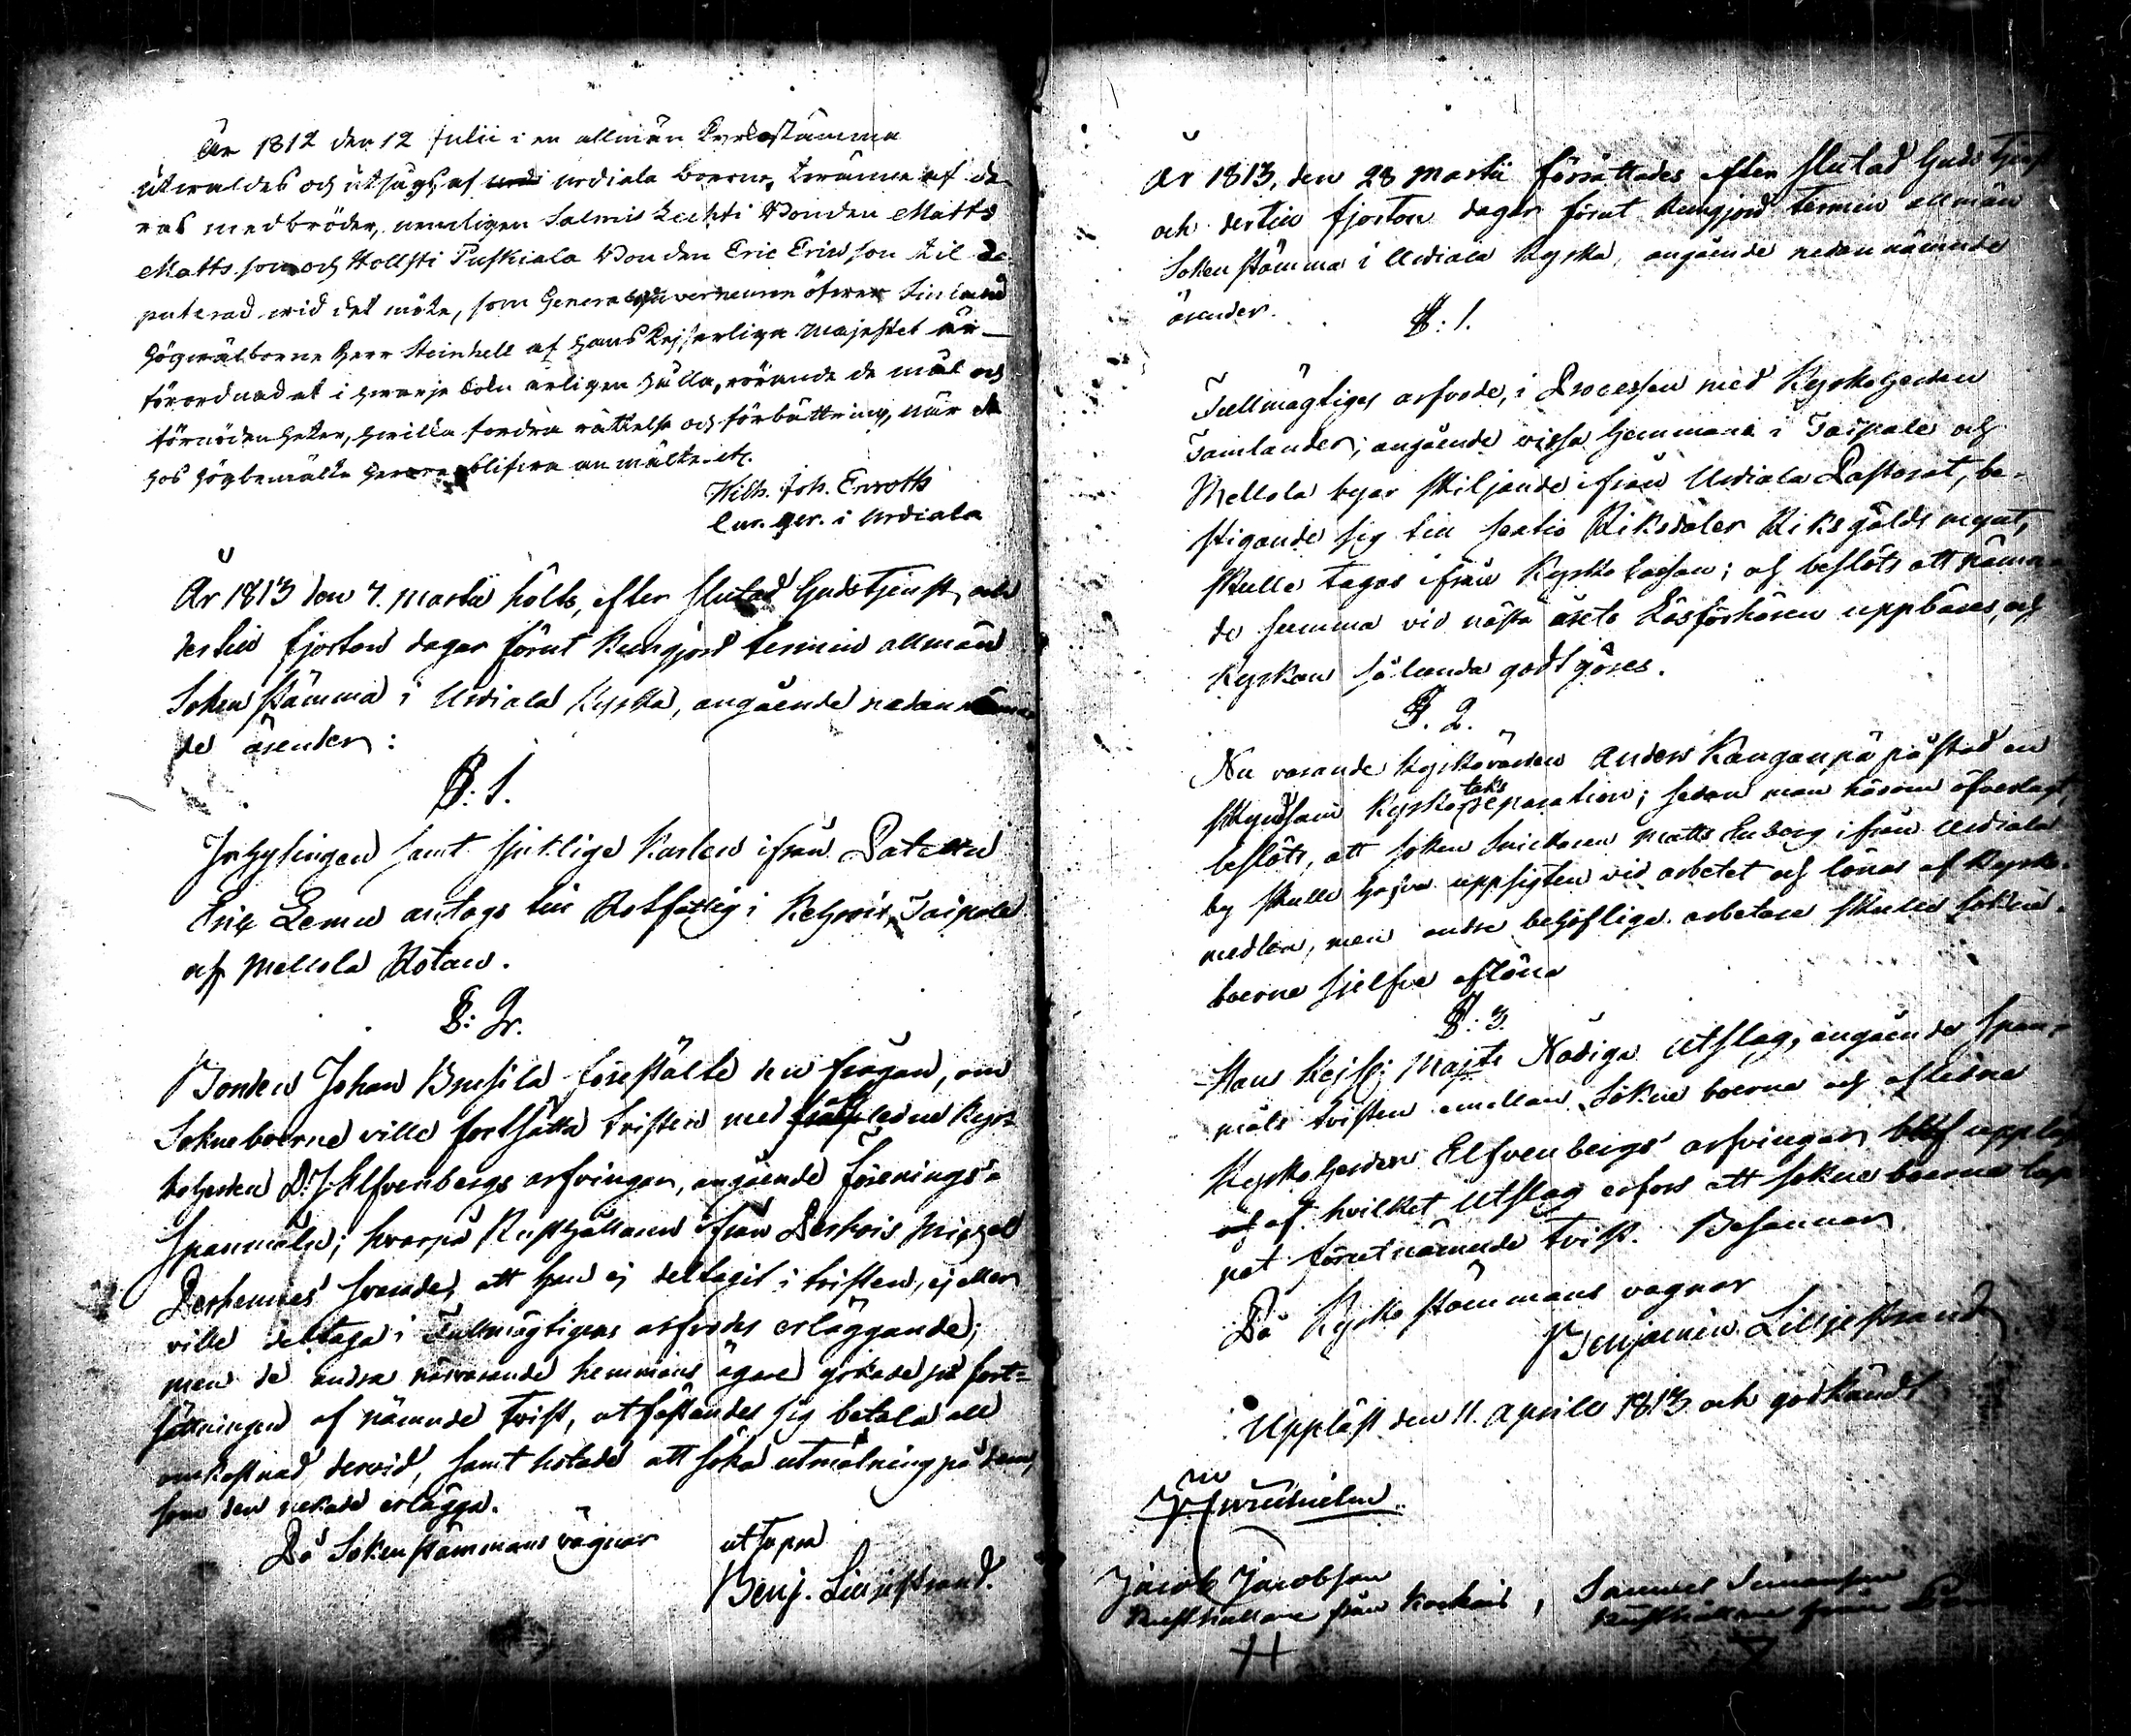 År 1812 den 12 Julii i en allmän Kyrkostämma
utwaldes och utsågs af Urdi Urdiala boerne, tvänne af de-
ras medbröder, nemligen Salmis Lechti Bonden Matts
Mattsson och Hollsti Puskiala Bonden Eric Ericsson til de-
puterad wid det möte, som General Gouverneuren öfwer Finland
Högwälborne Herr Steinheil af Hans Kejserliga Majestet är
förordnad at i hwarje Soln årligen hålla, rörande de mål och
förnödenheter, hwilka fordra rättelse och förbättring, när de
hos högbemälte Herre blifwa anmälte etc.
Wilh. Joh. Enroth
Cur. ger. i Urdiala
År 1813 den 7. Martii hölts, efter slutad Gudstjenst, och
dertill fjorton dagar förut kungjord termin allmän
Sokenstämma i Urdiala Kyrka, angående nedannämn-
de ärender:
§: 1.
Inhysingen samt sjuklige Karlen ifrån
Eric Lemu antogs till Rotfattig i Kehrois, Taipale
af Mellola Rotan.
§: 2.
Bonden Johan Brusila föreställte den frågan, om
Sokneboerne ville fortsätta tvisten med framledne Kyr-
koherden D. J. Elfvenbergs arfvingar, angående förenings-
spanmålen; hvarpå Rusthållaren ifrån
svarade, att han ej deltagit i tvisten, ej eller
ville deltaga i Fullmägtigens arfvodes erläggande;
men de andra närvarande hemmans ägare yrkade på fort-
sättningen af nämnde tvist, utfästandes sig betala all
omkostnad dervid, samt hotade att söka utmätning på dem,
som den nekade erlägga.
På Sokenstämmans vägnar
ut supra
Benj. Liljestrand.
År 1813, den 28 Martii förrättades efter slutad Gudstjenst
och dertill fjorton dagar förut kungjord termin allmän
Sokenstämma i Urdiala Kyrka, angående nedannämnde
ärender.
§: 1.
Fullmägtiges arfvode, i Processen med Kyrkoherden
Tamlander, angående vissa hemmans i Taipale och
Mellola byar skiljande ifrån Urdiala Pastorat, be-
stigande sig till sextio Riksdaler Riksgälds mynt,
skulle tagas ifrån Kyrko Cassan; och beslöts att nämn-
de summa vid nästa årets Läsförhören uppbäres, och
Kyrkan sålunda godtgöres.
§. 2.
Nu varande Kyrkovärden Anders Kanganpä påstod en
skyndsam Kyrkotaks reparation; sedan man härom öfverlagt,
beslöts, att soken Snickaren Matts Enberg ifrån Urdiala
by skulle hafva uppsigten vid arbetet och lönas af Kyrko-
medlen, men andre behöflige arbetare skulle sokne-
boerne sjelfve aflöna
§: 3.
Hans Kejsl: Majts Nådiga Utslag, angående span-
måls tvisten emellan Sokne boerne och afledne
Kyrkoherden Elfvenbergs arfvingar, blef uppläst
af hvilket Utslag erfors att sokne boerne tap-
pat förutnämnde tvist.
På Kyrkostämmans vägnar
Benjamin Liljestrand
Uppläst den 11. Aprill 1813 och godkändt
Jacob Jacobsson
Rusthållare från , Samuel Simonsson
Rusthållare från